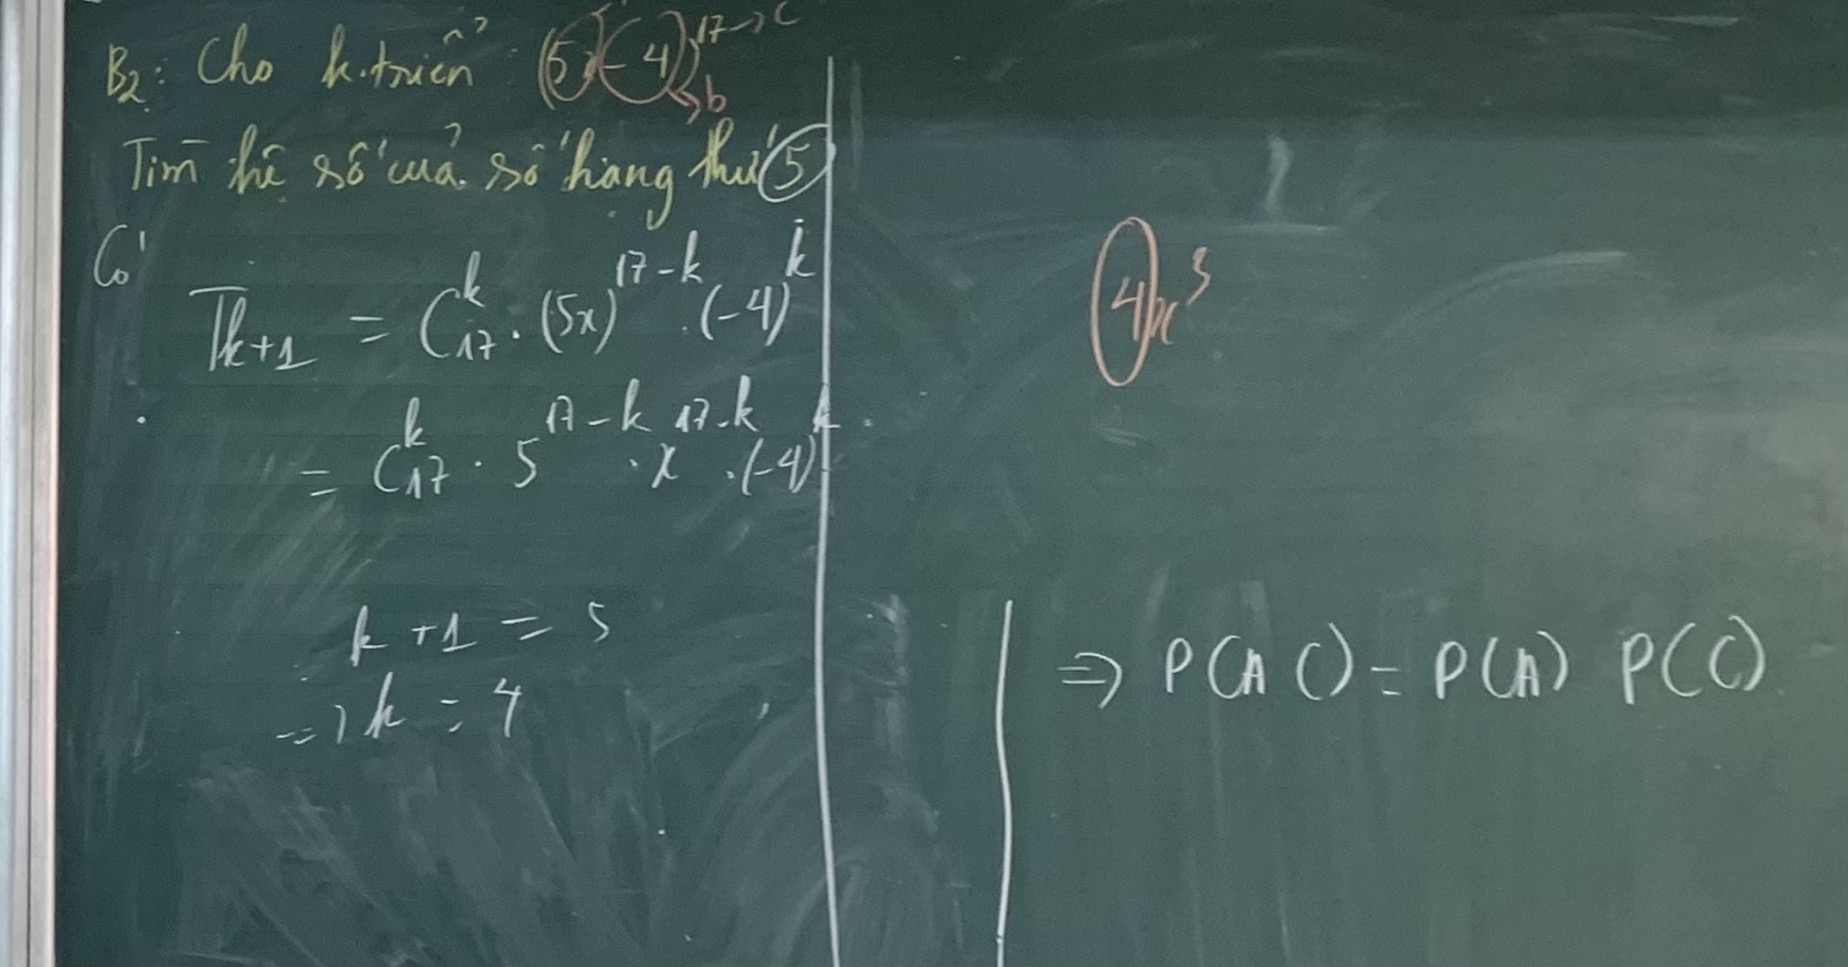 B2: Cho k.triển (5x - 4)^17 → c
→ b
Tìm hệ số của số hạng thứ 5
Có
T_{k+1} = C_17^k . (5x)^{17-k} . (-4)^k
= C_17^k . 5^{17-k} . x^{17-k} . (-4)^k
k + 1 = 5
=> k = 4
4x^3
=> P(A C) = P(A) P(C)